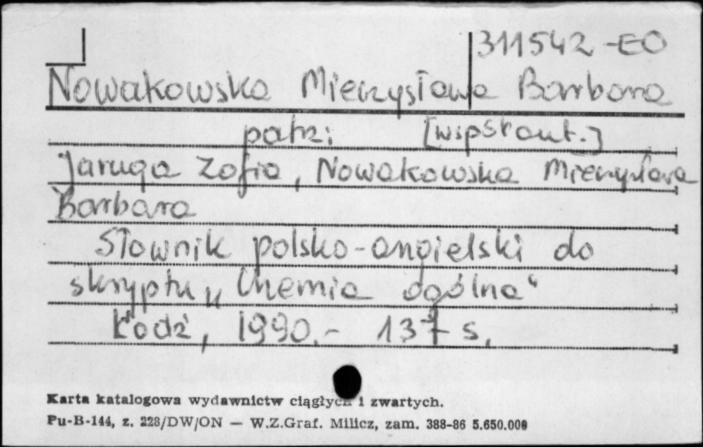 311542-EO
Nowakowska Mieczysława Barbara
patrz: [współaut.]
Jaruga Zofia, Nowakowska Mieczysława
Barbara
Słownik polsko-angielski do
skryptu „Chemia ogólna“
Łódź, 1990.- 137 s.
Karta katalogowa wydawnictw ciągłych i zwartych.
Pu-B-144, z. 228/DW/ON — W.Z.Graf. Milicz, zam. 388-86 5.650.000